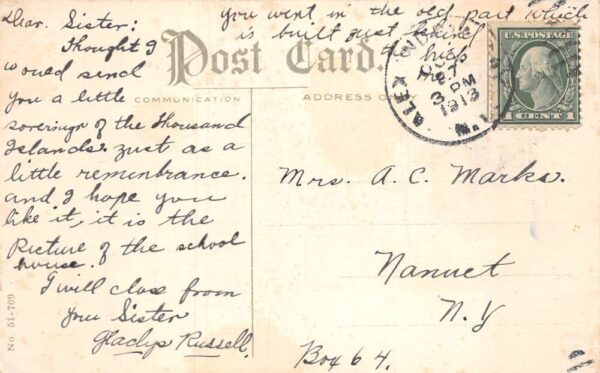 Dear Sister:
Thought I
would send
you a little
soverign of the Thousand
Islands. Just as a
little remembrance.
and I hope you
like it, it is the
Picture of the school
house.
I will close from
your Sister
Gladys Russell.
you went in the old part which
is built just behind
this
Post Card.
COMMUNICATION
ADDRESS
ALEX
27
3 PM
1913
N.Y.
U.S. POSTAGE
1 CENT 1
Mrs. A. C. Marks.
Nanuet
N.Y
Box 64.
No. 51-709